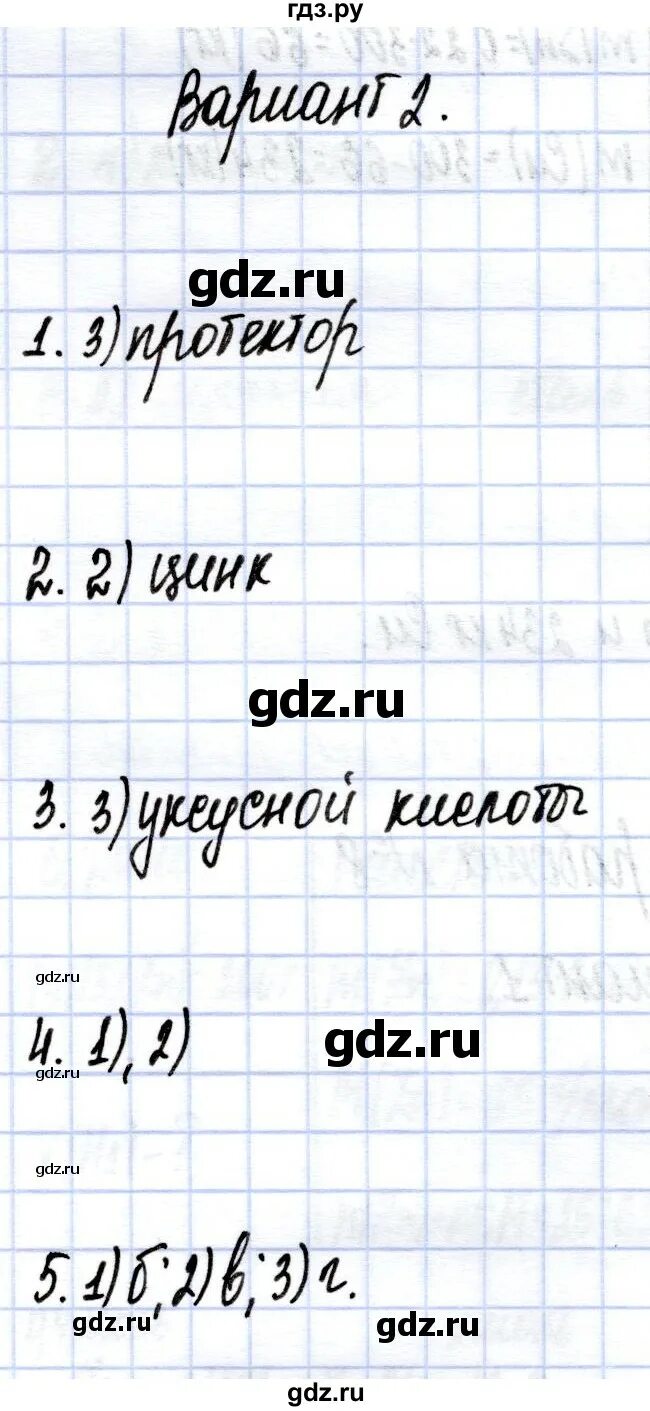 гдз.ру
Вариант 2.
gdz.ru
1. 3) протектор
2. 2) цинк
gdz.ru
3. 3) уксусной кислоты
gdz.ru
4. 1), 2)
gdz.ru
gdz.ru
gdz.ru
5. 1) б; 2) в; 3) г.
gdz.ru
gdz.ru
gdz.ru